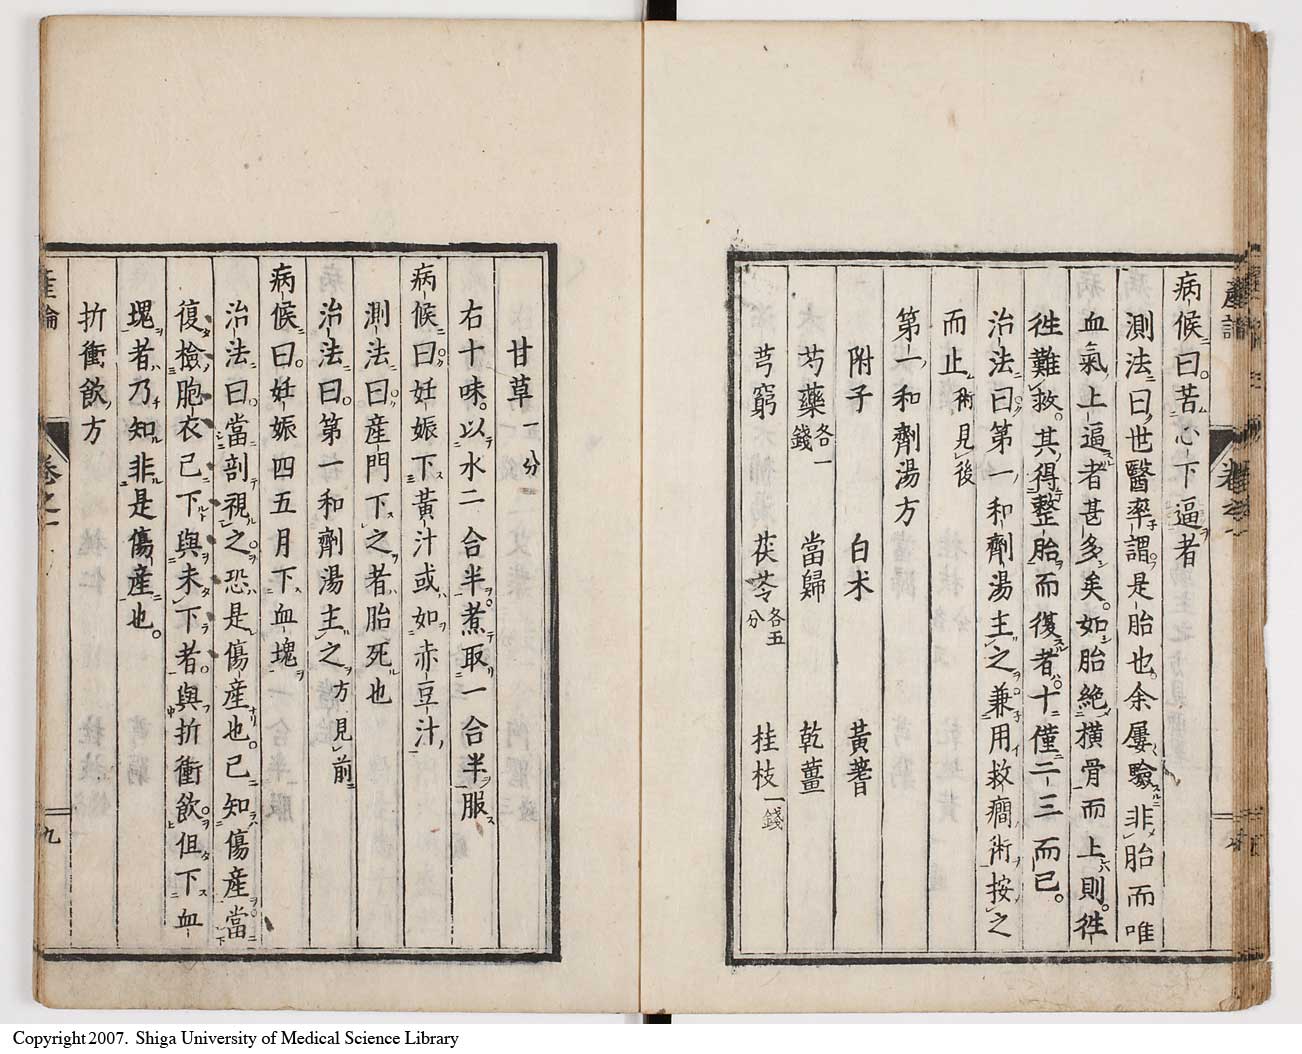 產論
卷之一
病候曰苦心下逼者
測法曰世醫率謂是胎也余屢驗非胎而唯
血氣上逼者甚多矣。如胎絕橫骨而上則。徃
徃難救。其得整胎而復者。十僅二三而已。
治法曰第一和劑湯主之兼用救癇術按之
而止術見後
第一和劑湯方
附子 白朮 黃蓍
芍藥各一錢 當歸 乾薑
芎窮 茯苓各五分 桂枝一錢
甘草一分
右十味。以水二合半煮取一合半服
病候曰妊娠下黃汁或如赤豆汁
測法曰產門下之者胎死也
治法曰第一和劑湯主之方見前
病候曰妊娠四五月下血塊
治法曰當剖視之恐是傷產也。已知傷產當
復檢胞衣已下與未下者與折衝飲但下血
塊者乃知非是傷產也。
折衝飲方
產論
卷之一
九
Copyright 2007. Shiga University of Medical Science Library